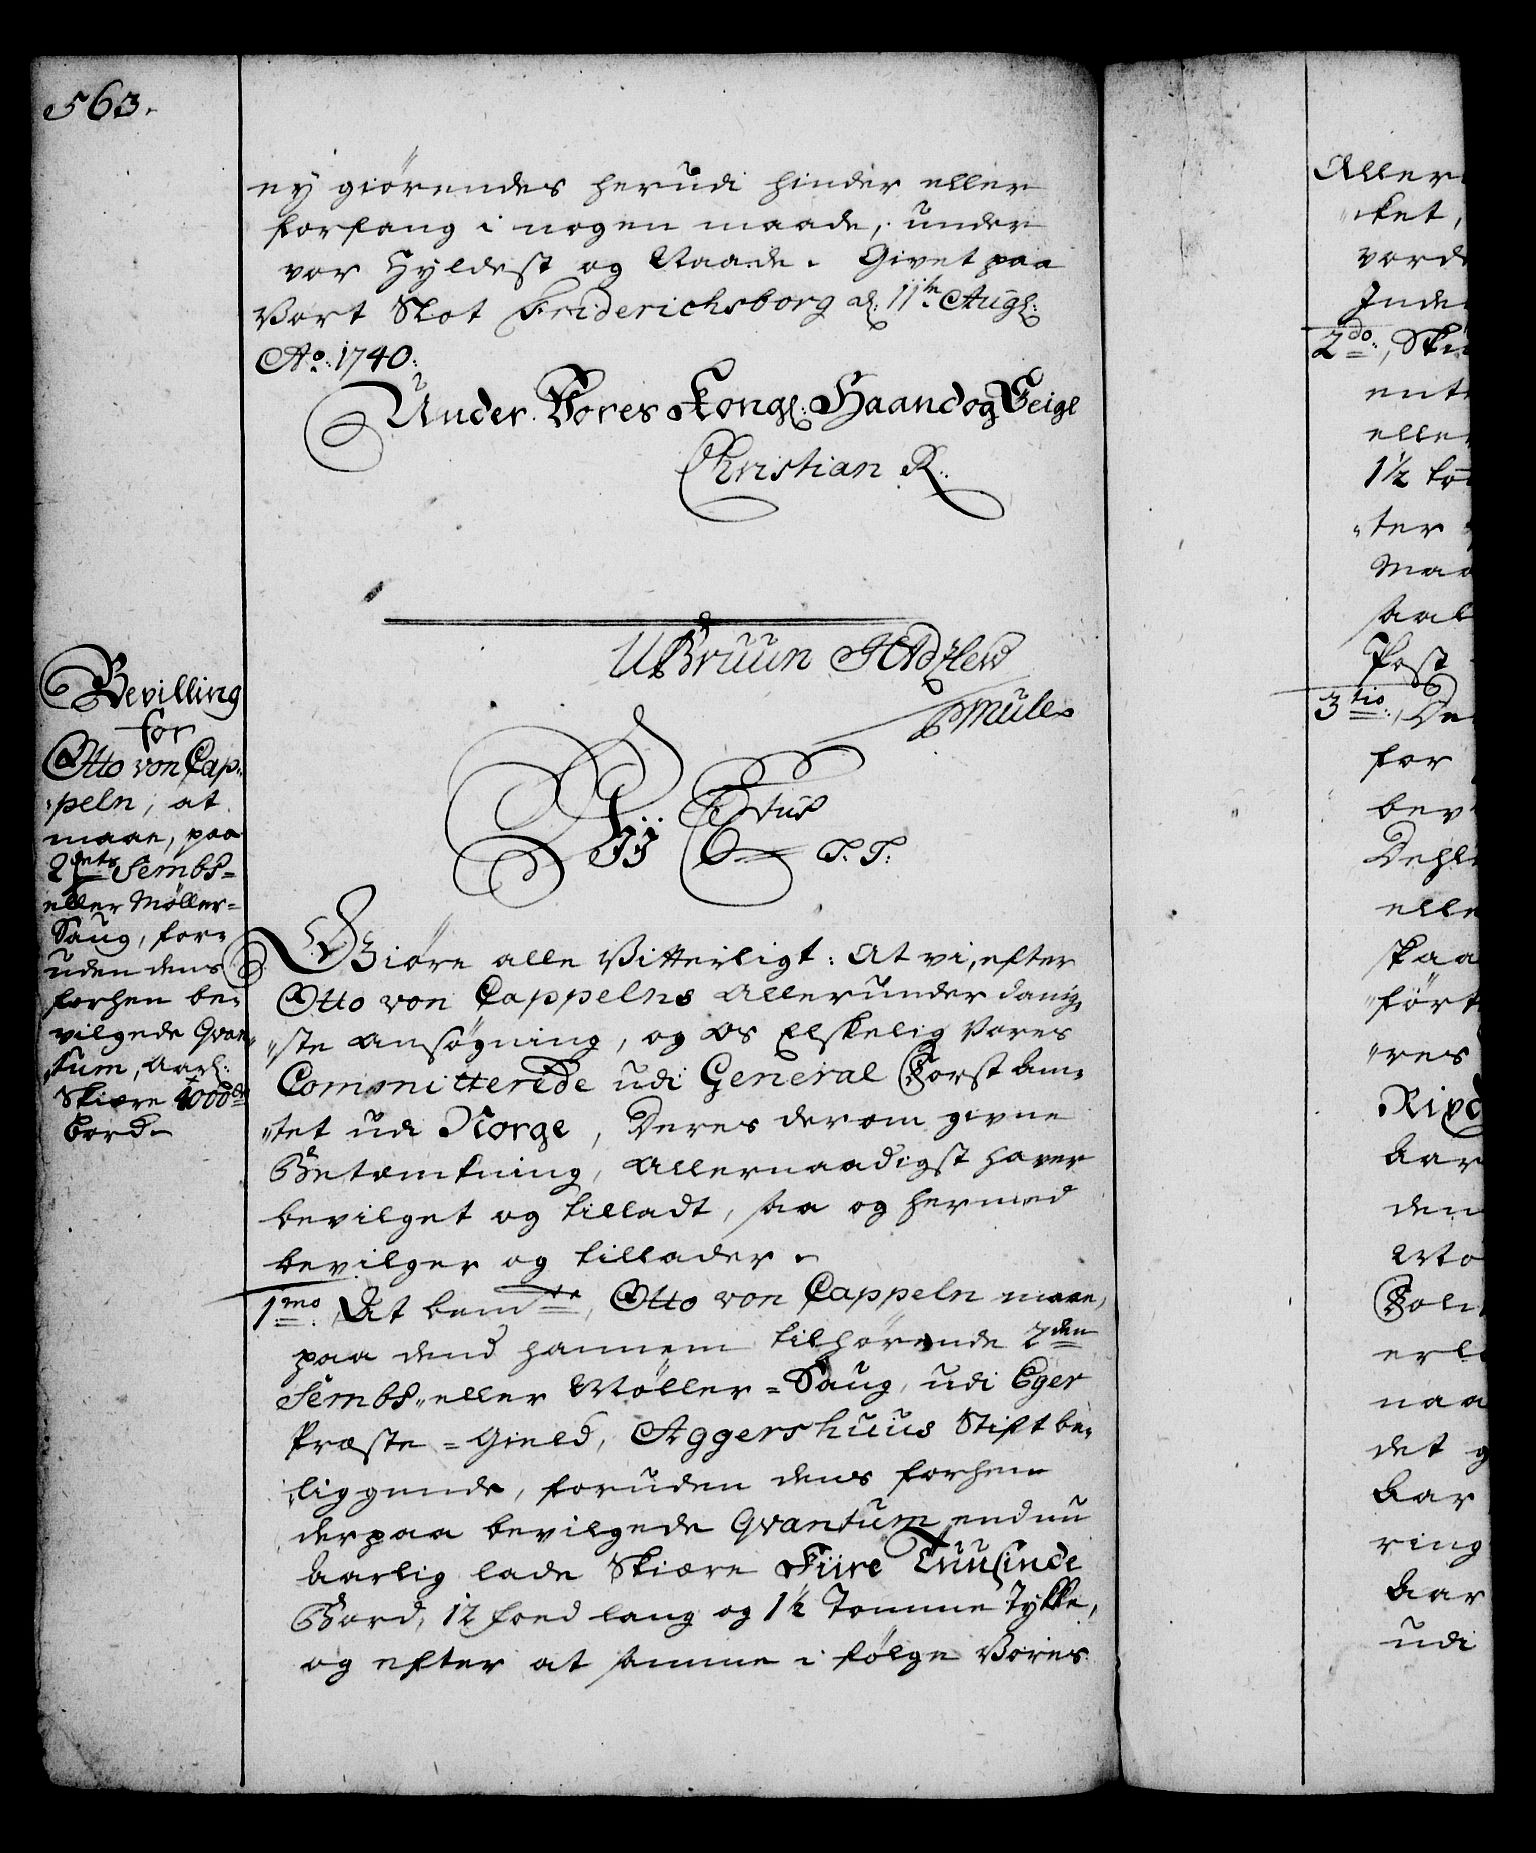 563.
ey giörendes herudi hinder eller
forfang i nogen maade, under
vor Hyldest og Naade. Givet paa
Vort Slot Friderichsborg d: 11te Augl:
Ao: 1740.
Under Vores Kongl: Haand og Seigl
Christian R.
Bruun
Mule
Bevilling
for
Otto von Cap-
peln, at
maae, paa
2dets Sembs-
eller Møller-
Saug, for-
uden dens
forhen be-
vilgede Qvan-
tum, Aarl:
Skiære 4000de
Bord.
Vij C 6tus
T. T:
Giöre alle Vitterligt: At vi, efter
Otto von Cappelns allerunderdanig-
ste ansögning, og os Elskelig Vores
Committerede udi General Forst Am-
tet udi Norge, Deres derom givne
Betænkning, Allernaadigst haver
bevilget og tilladt, saa og hermed
bevilger og tillader.
1mo. At bemte, Otto von Cappeln maae,
paa dend hannem tilhørende 2den
Sembs- eller Möller-Saug, udi Eger
Præste-Gield, Aggershuus Stift be-
liggende, foruden dens forhen
derpaa bevilgede Qvantum endnu
Aarlig lade Skiære Fiire Tuusinde
Bord, 12 foed lang og 1½ Tomme Tykke,
og efter at samme i følge Vores
Aller
ket,
vord
Inde
2do:, Ski
ent
elle
1½ to
ter
Maa
saal
Post
3tio:, De
for
bev
Dehl
elle
skaa
fört
res
Rixd
Aar
den
Mö
Fol
erl
naa
det g
Aar
ring
Aar
udi